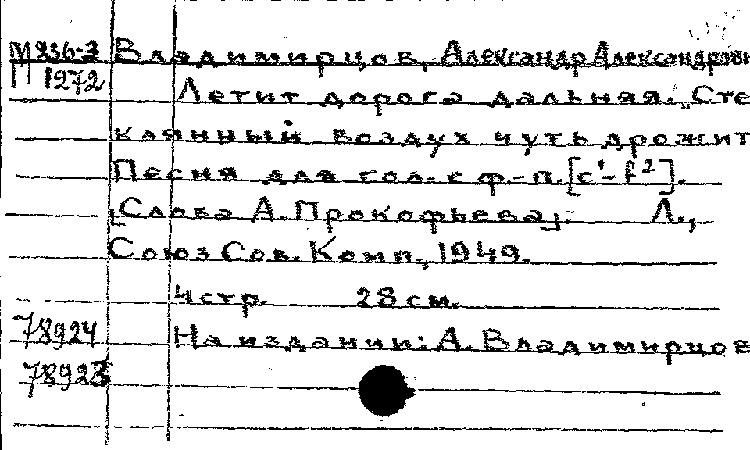 М 236-3 Владимирцов, Александр Александрови
П 1272
Летит дорога дальняя. „Сте
клянный воздух чуть дрожит
Песня для гол. с ф.-п. [c¹-f²].
[Слова А. Прокофьева]. Л.,
Союз Сов. Комп., 1949.
4 стр. 28 см.
78924 На издании: А. Владимирцов
78923